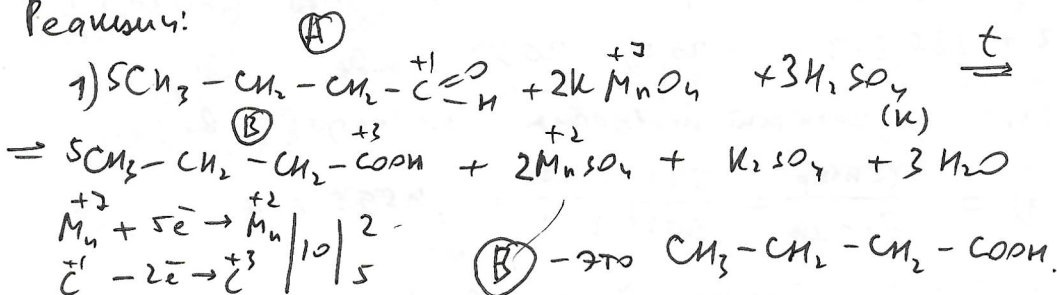 Реакции:
А
1) 5CH₃ – CH₂ – CH₂ – C⁺¹ =O –H + 2K Mn⁺⁷O₄ + 3H₂SO₄ (к) t ⇒
В
= 5CH₃ – CH₂ – CH₂ – C⁺³OOH + 2Mn⁺²SO₄ + K₂SO₄ + 3H₂O
Mn⁺⁷ + 5ē → Mn⁺² | 10 | 2
C⁺¹ – 2ē → C⁺³ | 5
В – это CH₃ – CH₂ – CH₂ – COOH.